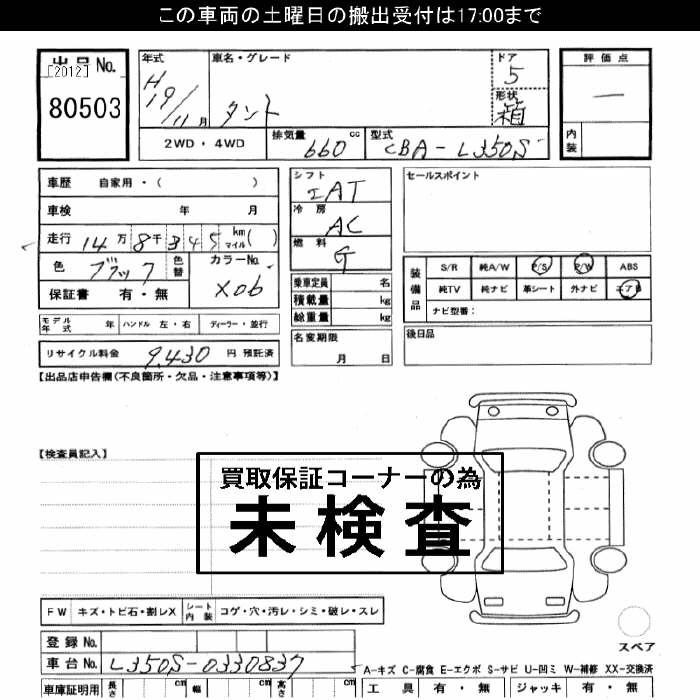 この車両の土曜日の搬出受付は17:00まで
出品No.
[2012]
80503
年式
H19/11月
車名・グレード
タント
ドア
5
形状
箱
2WD・4WD
排気量
660 cc
型式
CBA-L350S
評価点
一
内装
車歴 自家用・( )
車検 年 月
走行 14万8千345 km マイル( )
色 ブラック 色替
カラーNo.
X06
保証書 有・無
シフト
IAT
冷房
AC
燃料
G
乗車定員 名
積載量 kg
総重量 kg
セールスポイント
装備品
S/R 純A/W P/S P/W ABS
純TV 純ナビ 革シート 外ナビ エアB
ナビ型番:
モデル年式 年 ハンドル 左・右 ディーラー・並行
リサイクル料金 9,430 円 預託済
名変期限
月 日
後日品
【出品店申告欄(不良箇所・欠品・注意事項等)】
【検査員記入】
買取保証コーナーの為
未検査
FW キズ・トビ石・割レX シート内装 コゲ・穴・汚レ・シミ・破レ・スレ
スペア
登録No.
車台No. L350S-0330837
A-キズ C-腐食 E-エクボ S-サビ U-凹ミ W-補修 XX-交換済
車庫証明用 長さ cm 幅 cm 高さ cm
工具 有・無 ジャッキ 有・無